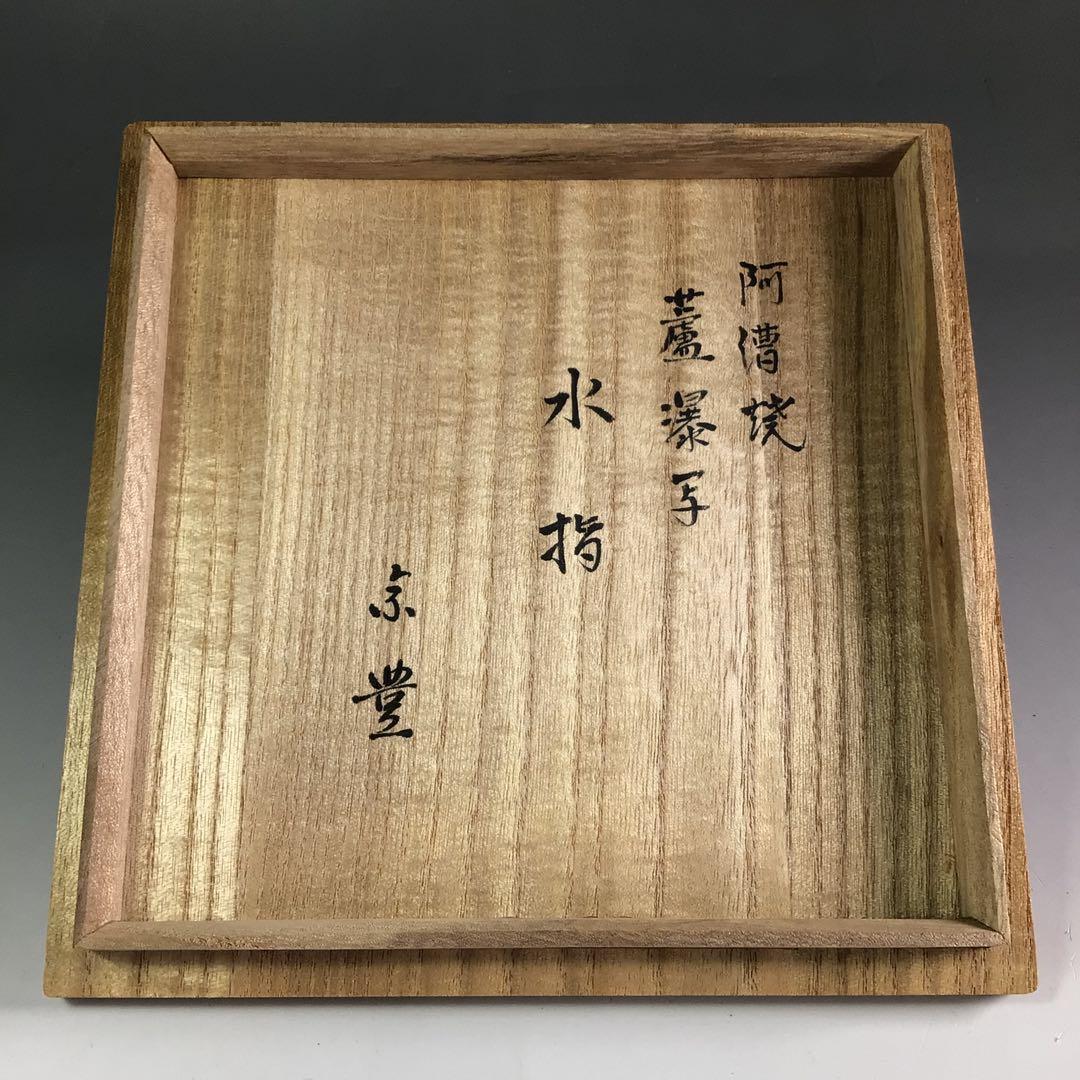 阿漕焼
蘆瀑写
水指
宗豊